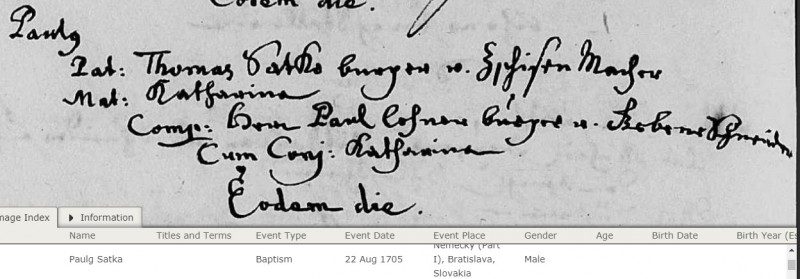 Eodem die.
Paulg
Pat: Thomas Satko burger v. Macher
Mat: Katharina
Comp: Herr Paul Lehner burger v. Schneider
Cum Conj: Katharina
Eodem die.
mage Index Information
Name Titles and Terms Event Type Event Date Event Place Gender Age Birth Date Birth Year (Es
Paulg Satka Baptism 22 Aug 1705 Nemecky (Part I), Bratislava, Slovakia Male